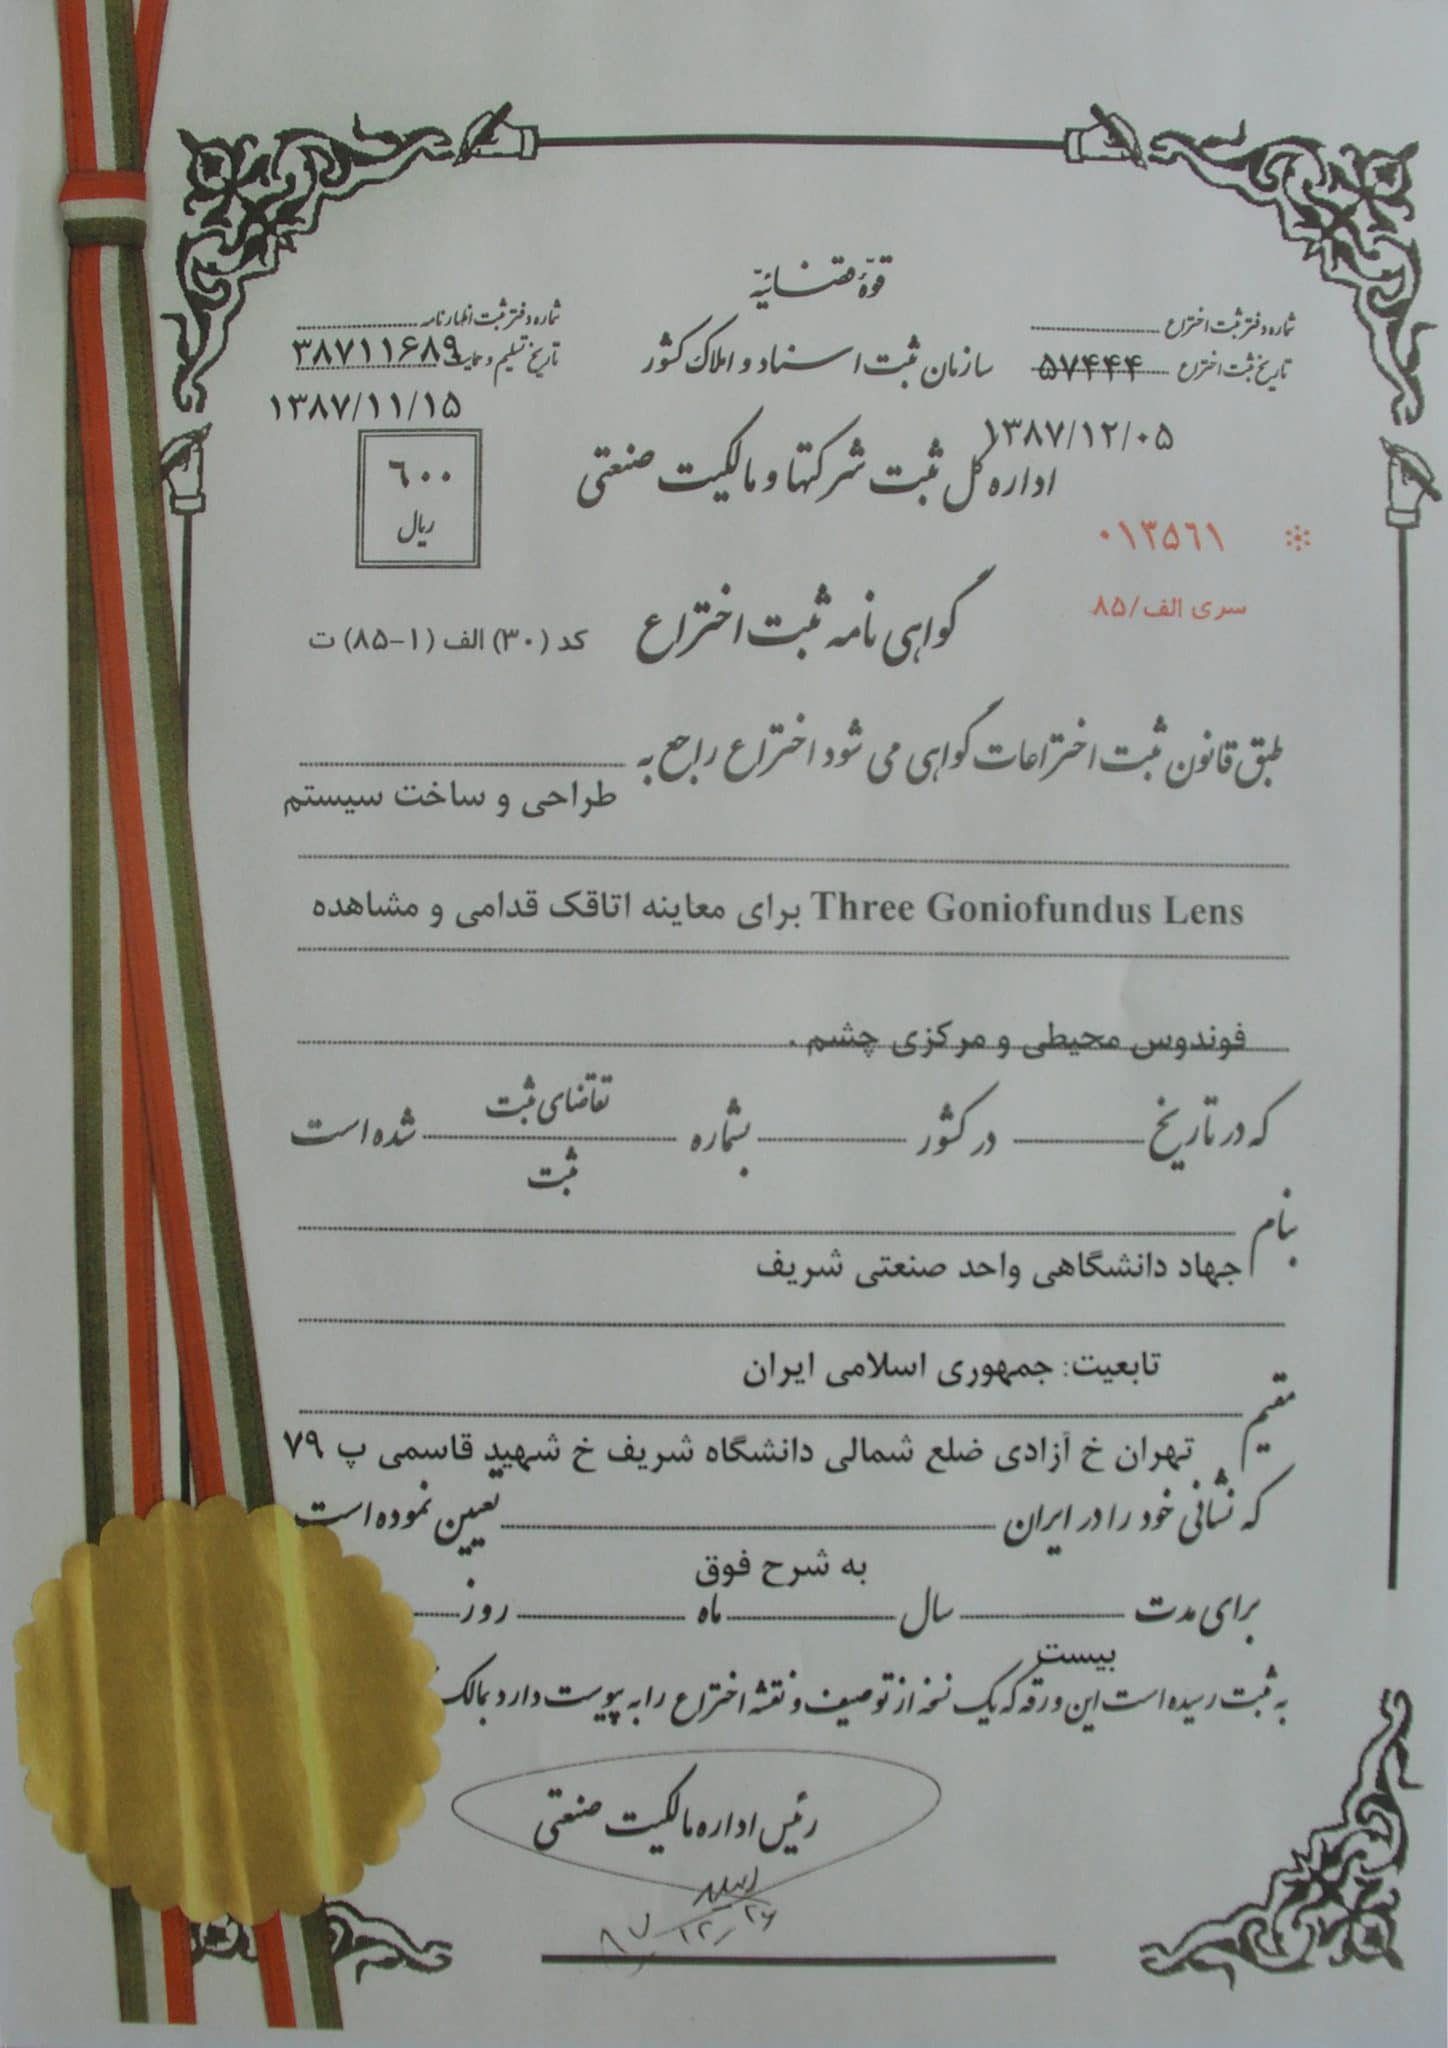 قوهٔ قضائیّه
شماره دفتر ثبت اختراع
شماره دفتر ثبت اظهارنامه
سازمان ثبت اسناد و املاک کشور
تاریخ ثبت اختراع ۵۷۴۴۴
تاریخ تسلیم و حمایت ۳۸۷۱۱۶۸۹
۱۳۸۷/۱۲/۰۵
۱۳۸۷/۱۱/۱۵
اداره کل ثبت شرکتها و مالکیت صنعتی
۶۰۰
ریال
۰۱۳۵۶۱ *
سری الف/۸۵
گواهی نامه ثبت اختراع
کد (۳۰) الف (۱-۸۵) ت
طبق قانون ثبت اختراعات گواهی می شود اختراع راجع به
طراحی و ساخت سیستم
Three Goniofundus Lens برای معاینه اتاقک قدامی و مشاهده
فوندوس محیطی و مرکزی چشم .
که در تاریخ در کشور بشماره تقاضای ثبت شده است
ثبت
بنام
جهاد دانشگاهی واحد صنعتی شریف
تابعیت: جمهوری اسلامی ایران
مقیم
تهران خ آزادی ضلع شمالی دانشگاه شریف خ شهید قاسمی پ ۷۹
که نشانی خود را در ایران تعیین نموده است
به شرح فوق
برای مدت سال ماه روز
بیست
به ثبت رسیده است این ورقه که یک نسخه از توصیف و نقشه اختراع را به پیوست دارد بمالک
رئیس اداره مالکیت صنعتی
۸۷/۱۲/۲۶